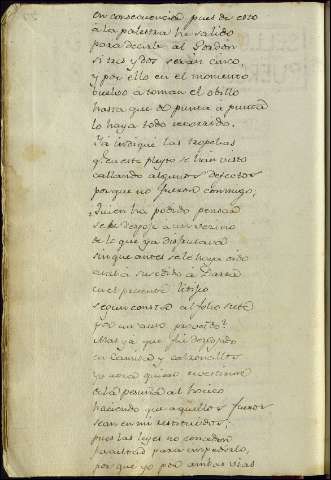 en consecuencia pues de esto
a la palestra he salido
para decirle al
si tres y dos seran cinco,
y por ello en el momento
buelvo a tomar el obillo
hasta que de punta a punta
lo haya todo recorrido.
Ya indiqué las tropelias
qe. en este pleyto se han visto
callando algunos
porque no fueron conmigo,
¿Quien ha podido pensar
se despoje a un vecino
de lo que ya disfrutava
sin que antes se le haya oido
qual ha sucedido a
en el presente litijio
segun consta al folio siete
por un auto proveido?
Mas ya que fui despojado
en camisa y calzoncillos
y ahora quieren
de la al
haciendo que aquellos
sean en mi restituidos,
pues las leyes no conceden
facultad para impedirlo,
por que yo por ambas vias